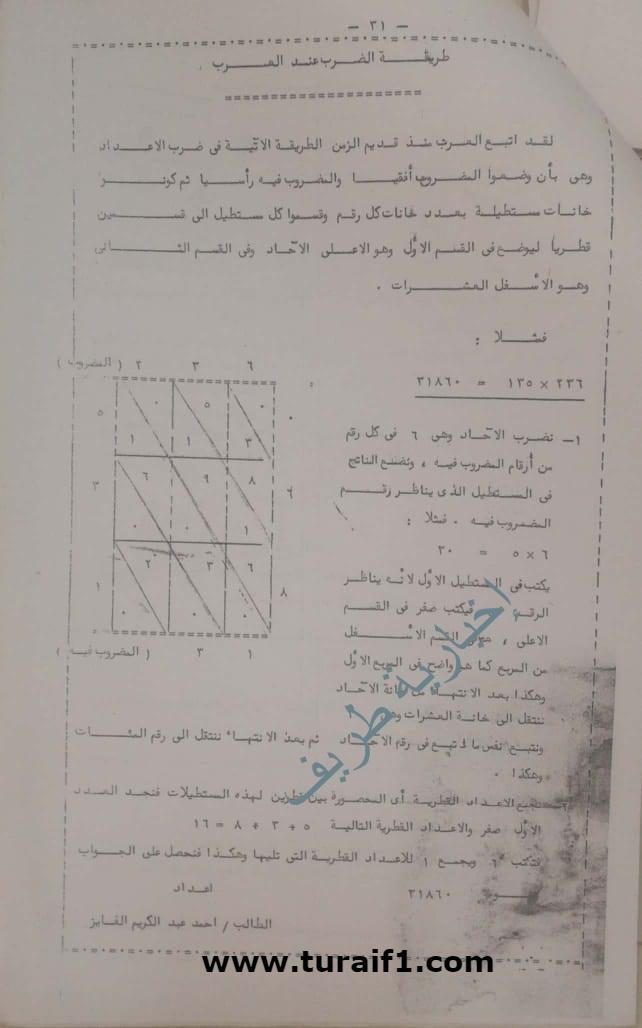 - ٣١ -
طريقة الضرب عند العرب
لقد اتبع العرب منذ قديم الزمن الطريقة الاتية في ضرب الاعداد
وهي بأن وضعوا المضروب أفقيا والمضروب فيه رأسيا ثم كونوا
خانات مستطيلة بعدد خانات كل رقم وقسموا كل مستطيل الى قسمين
قطريا ليوضع في القسم الاول وهو الاعلى الآحاد وفي القسم الثاني
وهو الاسفل العشرات .
فمثلا :
٢٣٦ × ١٣٥ = ٣١٨٦٠
١- نضرب الآحاد وهي ٦ في كل رقم
من أرقام المضروب فيه ، ونضع الناتج
في المستطيل الذي يناظر رقم
المضروب فيه . فمثلا :
٦ × ٥ = ٣٠
يكتب في المستطيل الاول لانه يناظر
الرقم فيكتب صفر في القسم
الاعلى ، القسم الاسفل
من المربع كما هو واضح في المربع الاول
وهكذا بعد الانتهاء من خانة الآحاد
ننتقل الى خانة العشرات وهي ٣
ونتبع نفس ما اتبع في رقم الآحاد ثم بعد الانتهاء ننتقل الى رقم المئات
وهكذا .
٢ ٣ ٦ ( المضروب )
٠ ٥ ٠ ٠
٥
١ ١ ٣
٦ ٩ ٨
٣ ٦
٠ ٠ ١
٢ ٣ ٦
١ ٨
٠ ٠ ٠
١ ٣ ( المضروب فيه )
نجمع الاعداد القطرية أي المحصورة بين قطرين لهذه المستطيلات فنجد العدد
الاول صفر والاعداد القطرية التالية ٥ + ٣ + ٨ = ١٦
فنكتب ٦ ويجمع ١ للاعداد القطرية التي تليها وهكذا فنحصل على الجواب
٣١٨٦٠
اعداد
الطالب / احمد عبد الكريم الفايز
اخبارية طريف
www.turaif1.com